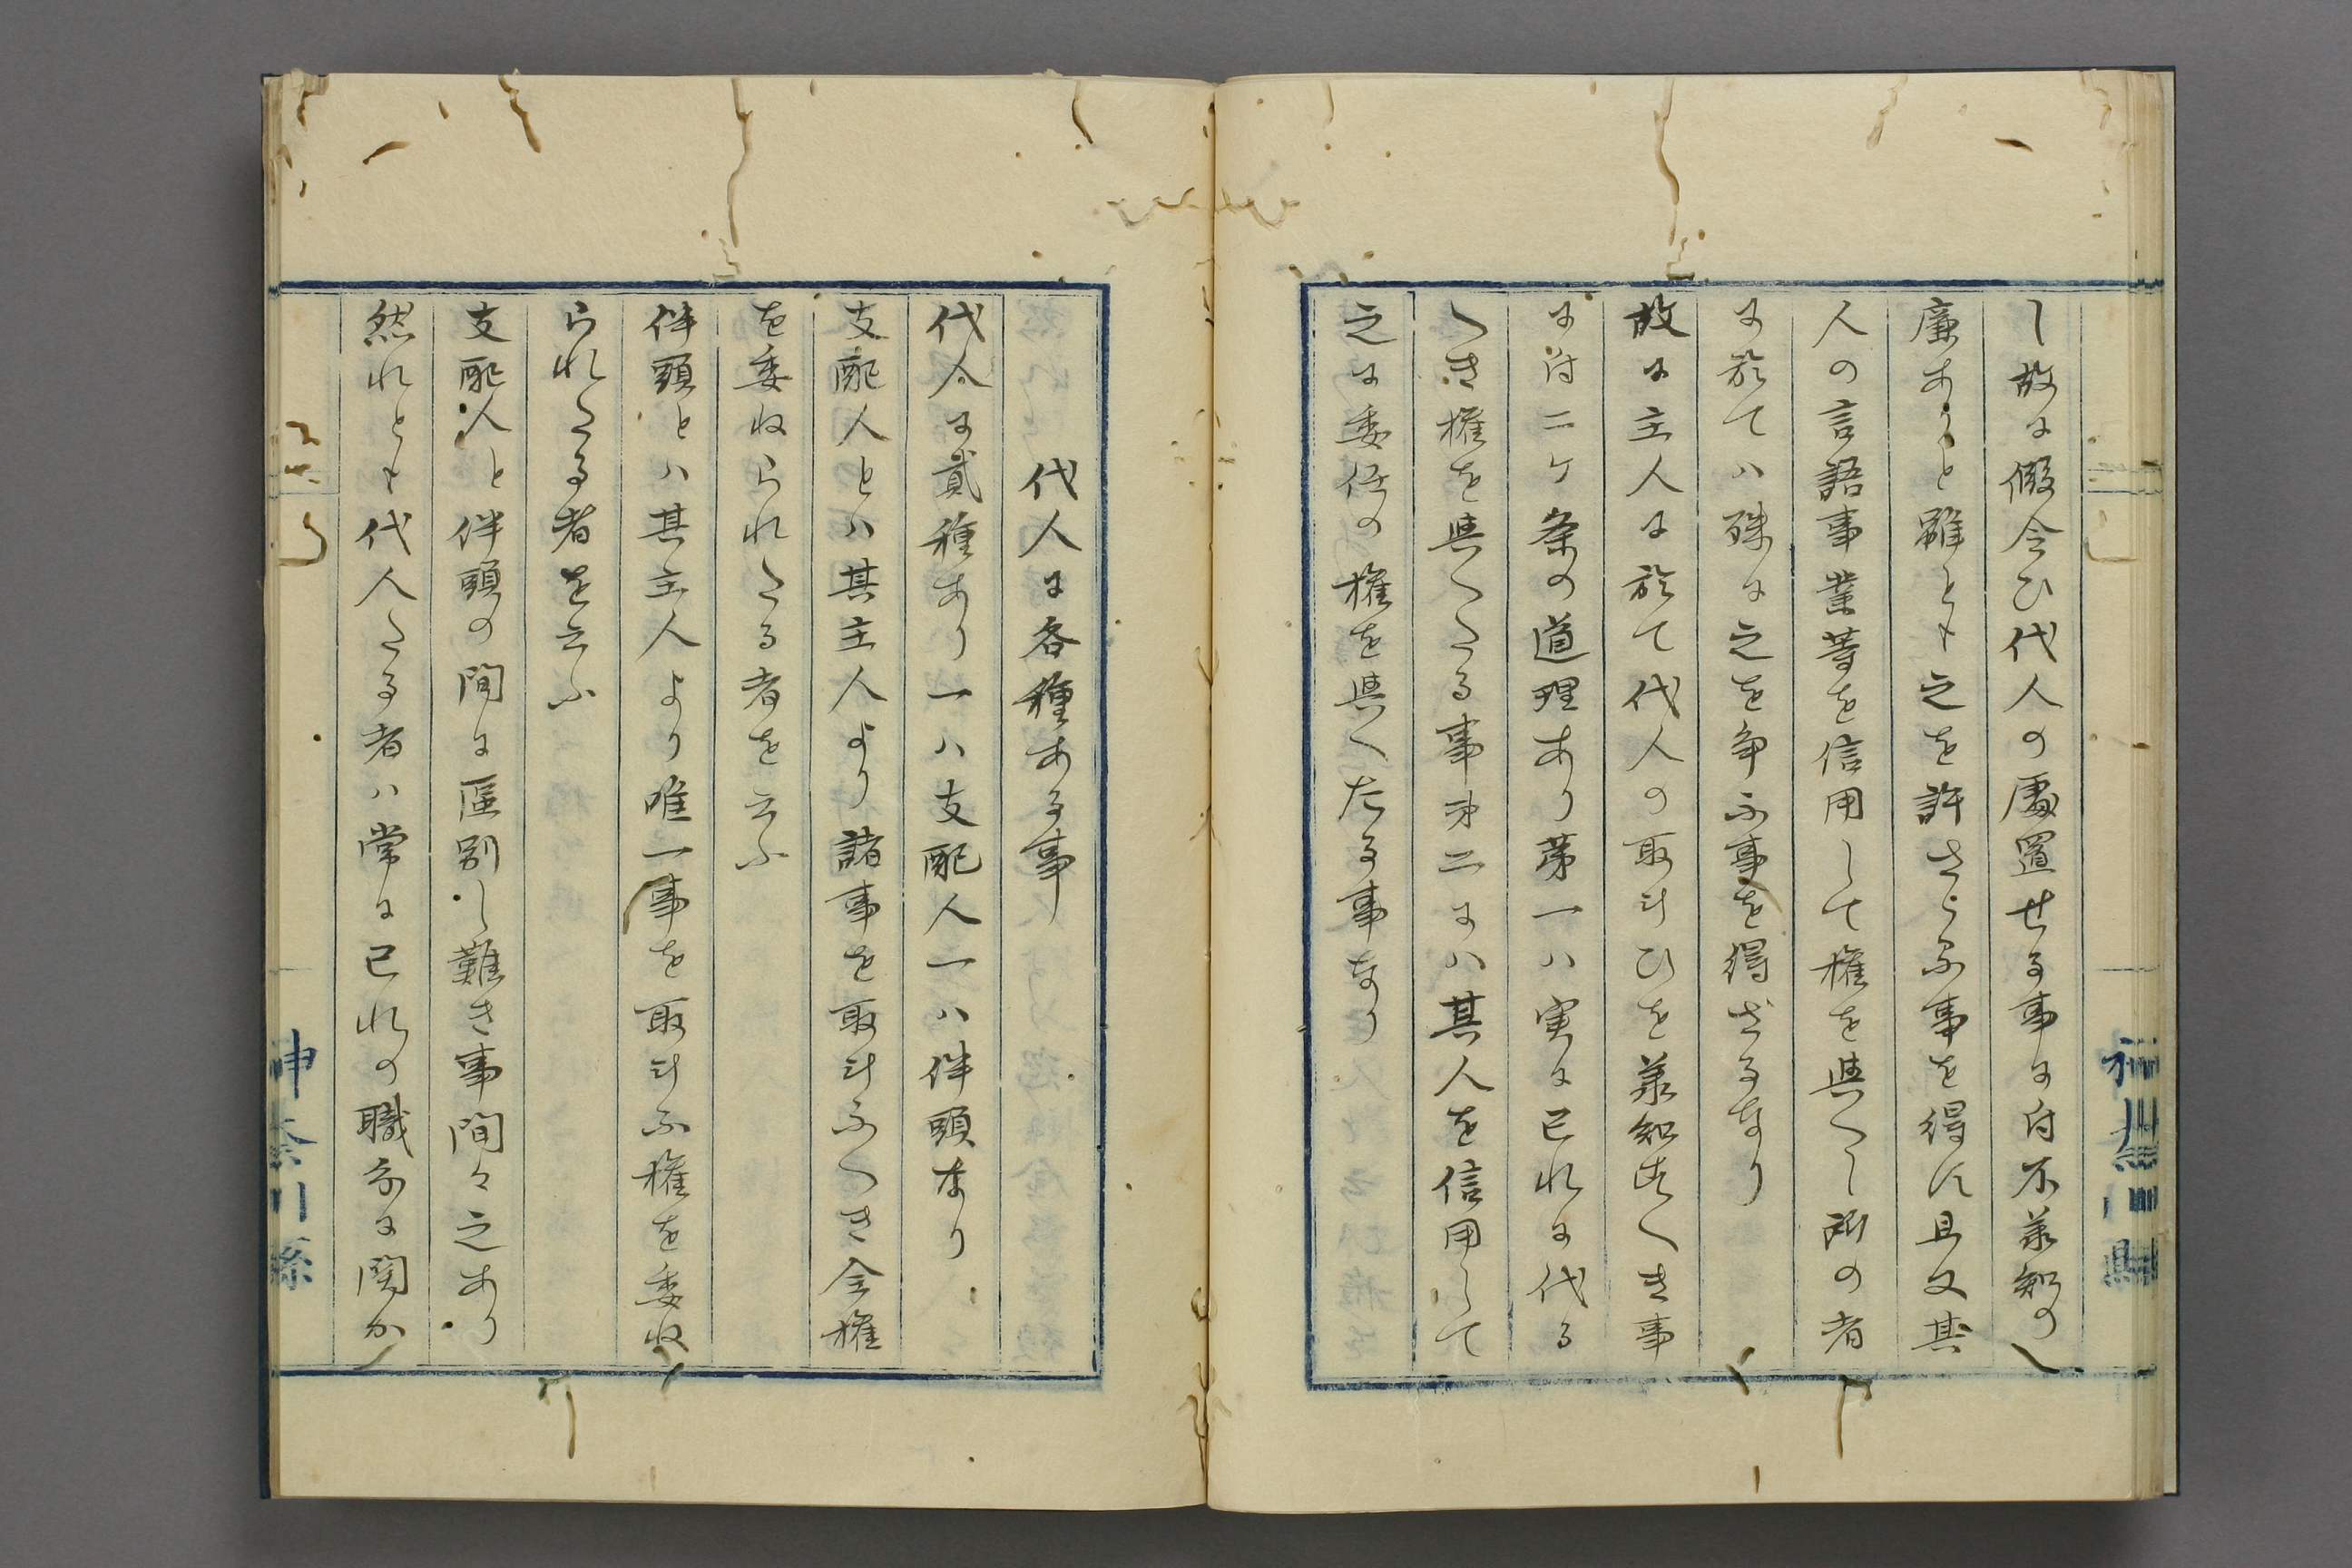 し故に假令ひ代人の處置せる事に付不兼知の
廉ありと雖とも之を許さゝる事を得に且又其
人の言語事業等を信用して権を與へし所の者
に於てハ殊に之を争ふ事を得ざるなり
故に主人に於て代人の取斗ひを兼知すへき事
に付二ケ条の道理あり第一ハ実に已れに代る
へき権を與へたる事第二にハ其人を信用して
之に委任の権を與へたる事なり
代人に各種ある事
代人に貳種あり一ハ支配人一ハ伴頭なり
支配人とハ其主人より諸事を取斗ふへき全権
を委ねられたる者を云ふ
伴頭とハ其主人より唯一事を取斗ふ権を委ね
られたる者を云ふ
支配人と伴頭の間に區別し難き事間々之あり
然れとも代人たる者ハ常に已れの職分に関か
神奈川縣